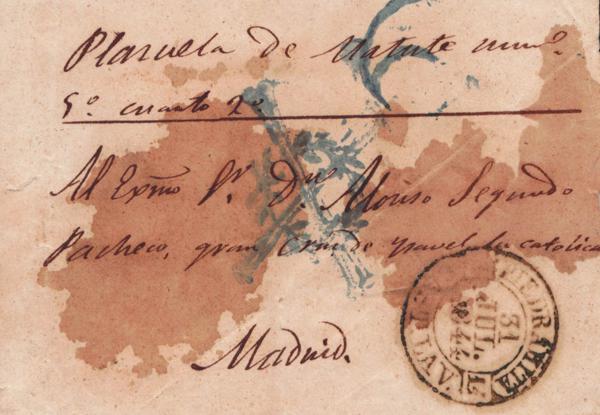 Plazuela de Matute num.º
5º cuarto 2º
Al Exmo Sr. Dn. Alonso Segundo
Pacheco, gran Cruz de Ysavel la catolica
Madrid.
PIEDRAHITA
31
JUL.
1844